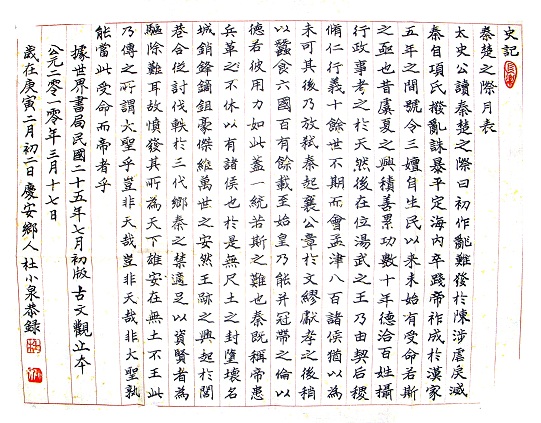 史記
秦楚之際月表
太史公讀秦楚之際曰初作難發於陳涉虐戾滅
秦自項氏撥亂誅暴平定海內卒踐帝祚成於漢家
五年之間號令三嬗自生民以來未始有受命若斯
之亟也昔虞夏之興積善累功數十年德洽百姓攝
行政事考之於天然後在位湯武之王乃由契后稷
脩仁行義十餘世不期而會孟津八百諸侯猶以為
未可其後乃放弒秦起襄公章於文繆獻孝之後稍
以蠶食六國百有餘載至始皇乃能并冠帶之倫以
德若彼用力如此蓋一統若斯之難也秦既稱帝患
兵革之不休以有諸侯也於是無尺土之封墮壞名
城銷鋒鏑鉏豪傑維萬世之安然王跡之興起於閭
巷合從討伐軼於三代鄉秦之禁適足以資賢者為
驅除難耳故憤發其所為天下雄安在無土不王此
乃傳之所謂大聖乎豈非天哉豈非天哉非大聖孰
能當此受命而帝者乎
據世界書局民國二十五年七月初版古文觀止本
公元二零一零年三月十七日
歲在庚寅二月初二日慶安鄉人杜小泉恭錄